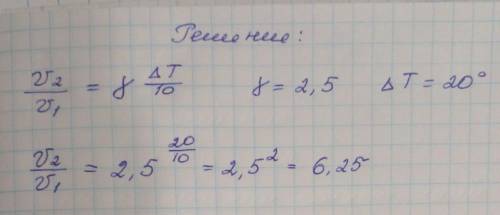 Решение:
v₂/v₁ = γ^(ΔT/10) γ = 2,5 ΔT = 20°
v₂/v₁ = 2,5^(20/10) = 2,5² = 6,25